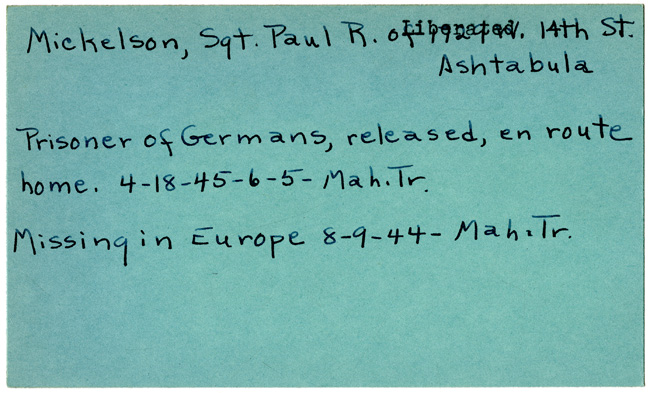 Mickelson, Sgt. Paul R. of W. 14th St.
Liberated
Ashtabula
Prisoner of Germans, released, en route
home. 4-18-45-6-5- Mah.Tr.
Missing in Europe 8-9-44- Mah.Tr.